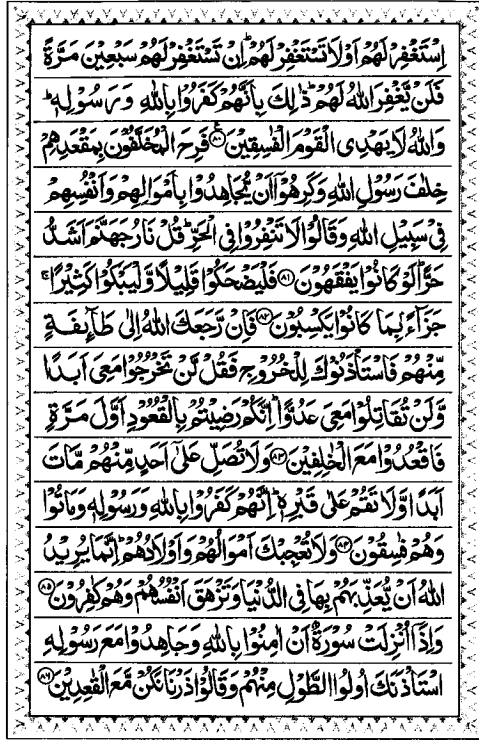 اِسْتَغْفِرْ لَهُمْ اَوْ لَا تَسْتَغْفِرْ لَهُمْ ؕ اِنْ تَسْتَغْفِرْ لَهُمْ سَبْعِیْنَ مَرَّةً
فَلَنْ یَّغْفِرَ اللّٰهُ لَهُمْ ؕ ذٰلِكَ بِاَنَّهُمْ كَفَرُوْا بِاللّٰهِ وَ رَسُوْلِهٖ ؕ
وَاللّٰهُ لَا یَهْدِی الْقَوْمَ الْفٰسِقِیْنَ ﴿۸۰﴾ۧ فَرِحَ الْمُخَلَّفُوْنَ بِمَقْعَدِهِمْ
خِلٰفَ رَسُوْلِ اللّٰهِ وَكَرِهُوْۤا اَنْ یُّجَاهِدُوْا بِاَمْوَالِهِمْ وَاَنْفُسِهِمْ
فِیْ سَبِیْلِ اللّٰهِ وَقَالُوْا لَا تَنْفِرُوْا فِی الْحَرِّ ؕ قُلْ نَارُ جَهَنَّمَ اَشَدُّ
حَرًّا ؕ لَوْ كَانُوْا یَفْقَهُوْنَ ﴿۸۱﴾ فَلْیَضْحَكُوْا قَلِیْلًا وَّلْیَبْكُوْا كَثِیْرًا ۚ
جَزَآءًۢ بِمَا كَانُوْا یَكْسِبُوْنَ ﴿۸۲﴾ فَاِنْ رَّجَعَكَ اللّٰهُ اِلٰی طَآىِٕفَةٍ
مِّنْهُمْ فَاسْتَاْذَنُوْكَ لِلْخُرُوْجِ فَقُلْ لَّنْ تَخْرُجُوْا مَعِیَ اَبَدًا
وَّلَنْ تُقَاتِلُوْا مَعِیَ عَدُوًّا ؕ اِنَّكُمْ رَضِیْتُمْ بِالْقُعُوْدِ اَوَّلَ مَرَّةٍ
فَاقْعُدُوْا مَعَ الْخٰلِفِیْنَ ﴿۸۳﴾ وَلَا تُصَلِّ عَلٰۤی اَحَدٍ مِّنْهُمْ مَّاتَ
اَبَدًا وَّلَا تَقُمْ عَلٰی قَبْرِهٖ ؕ اِنَّهُمْ كَفَرُوْا بِاللّٰهِ وَ رَسُوْلِهٖ وَمَاتُوْا
وَهُمْ فٰسِقُوْنَ ﴿۸۴﴾ وَلَا تُعْجِبْكَ اَمْوَالُهُمْ وَاَوْلَادُهُمْ ؕ اِنَّمَا یُرِیْدُ
اللّٰهُ اَنْ یُّعَذِّبَهُمْ بِهَا فِی الدُّنْیَا وَتَزْهَقَ اَنْفُسُهُمْ وَهُمْ كٰفِرُوْنَ ﴿۸۵﴾
وَاِذَاۤ اُنْزِلَتْ سُوْرَةٌ اَنْ اٰمِنُوْا بِاللّٰهِ وَجَاهِدُوْا مَعَ رَسُوْلِهِ
اسْتَاْذَنَكَ اُولُوا الطَّوْلِ مِنْهُمْ وَقَالُوْا ذَرْنَا نَكُنْ مَّعَ الْقٰعِدِیْنَ ﴿۸۶﴾